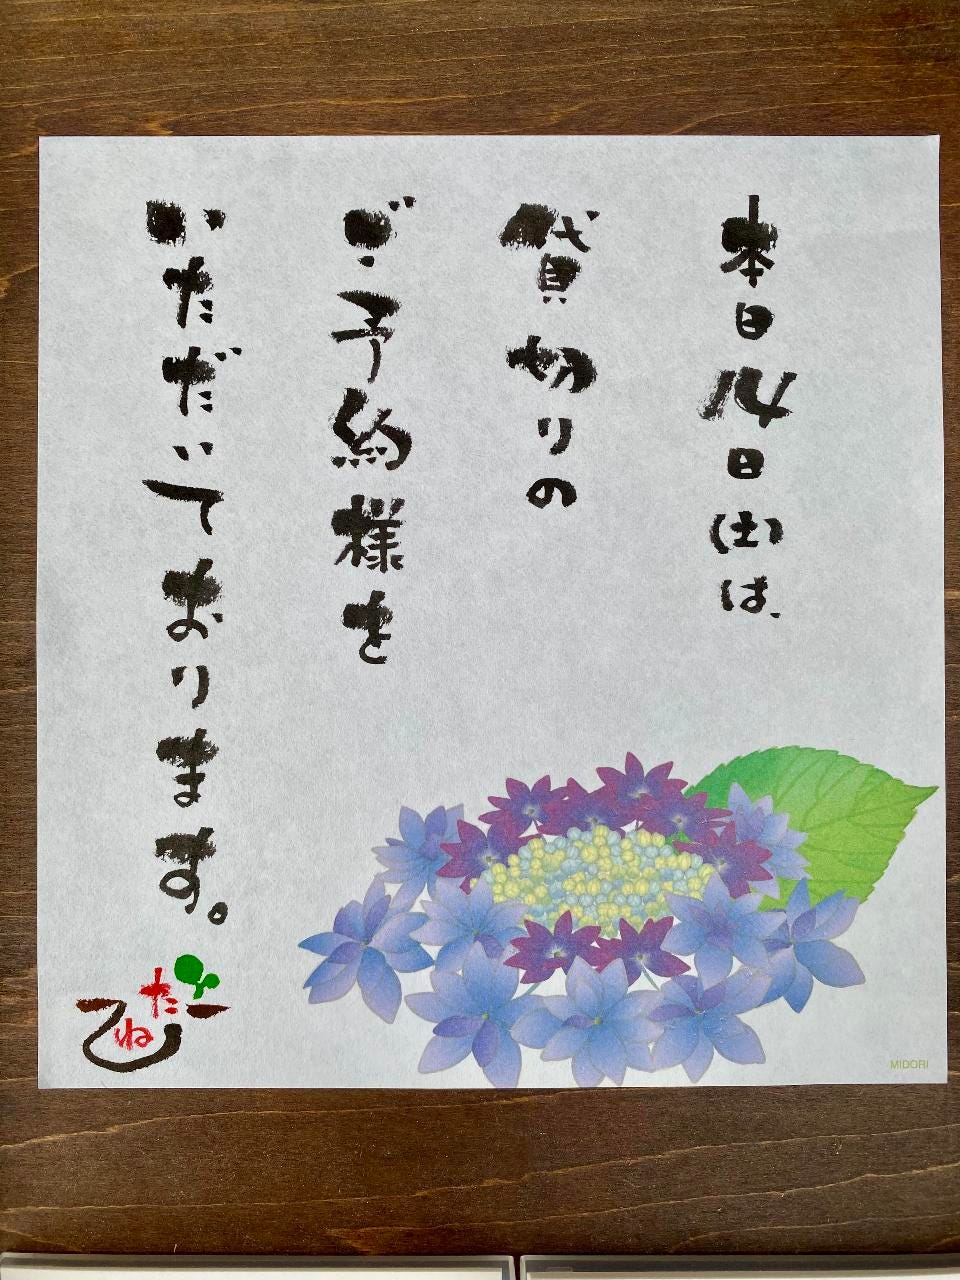 本日14日(土)は、
貸切りの
ご予約様を
いただいております。
ねた
MIDORI